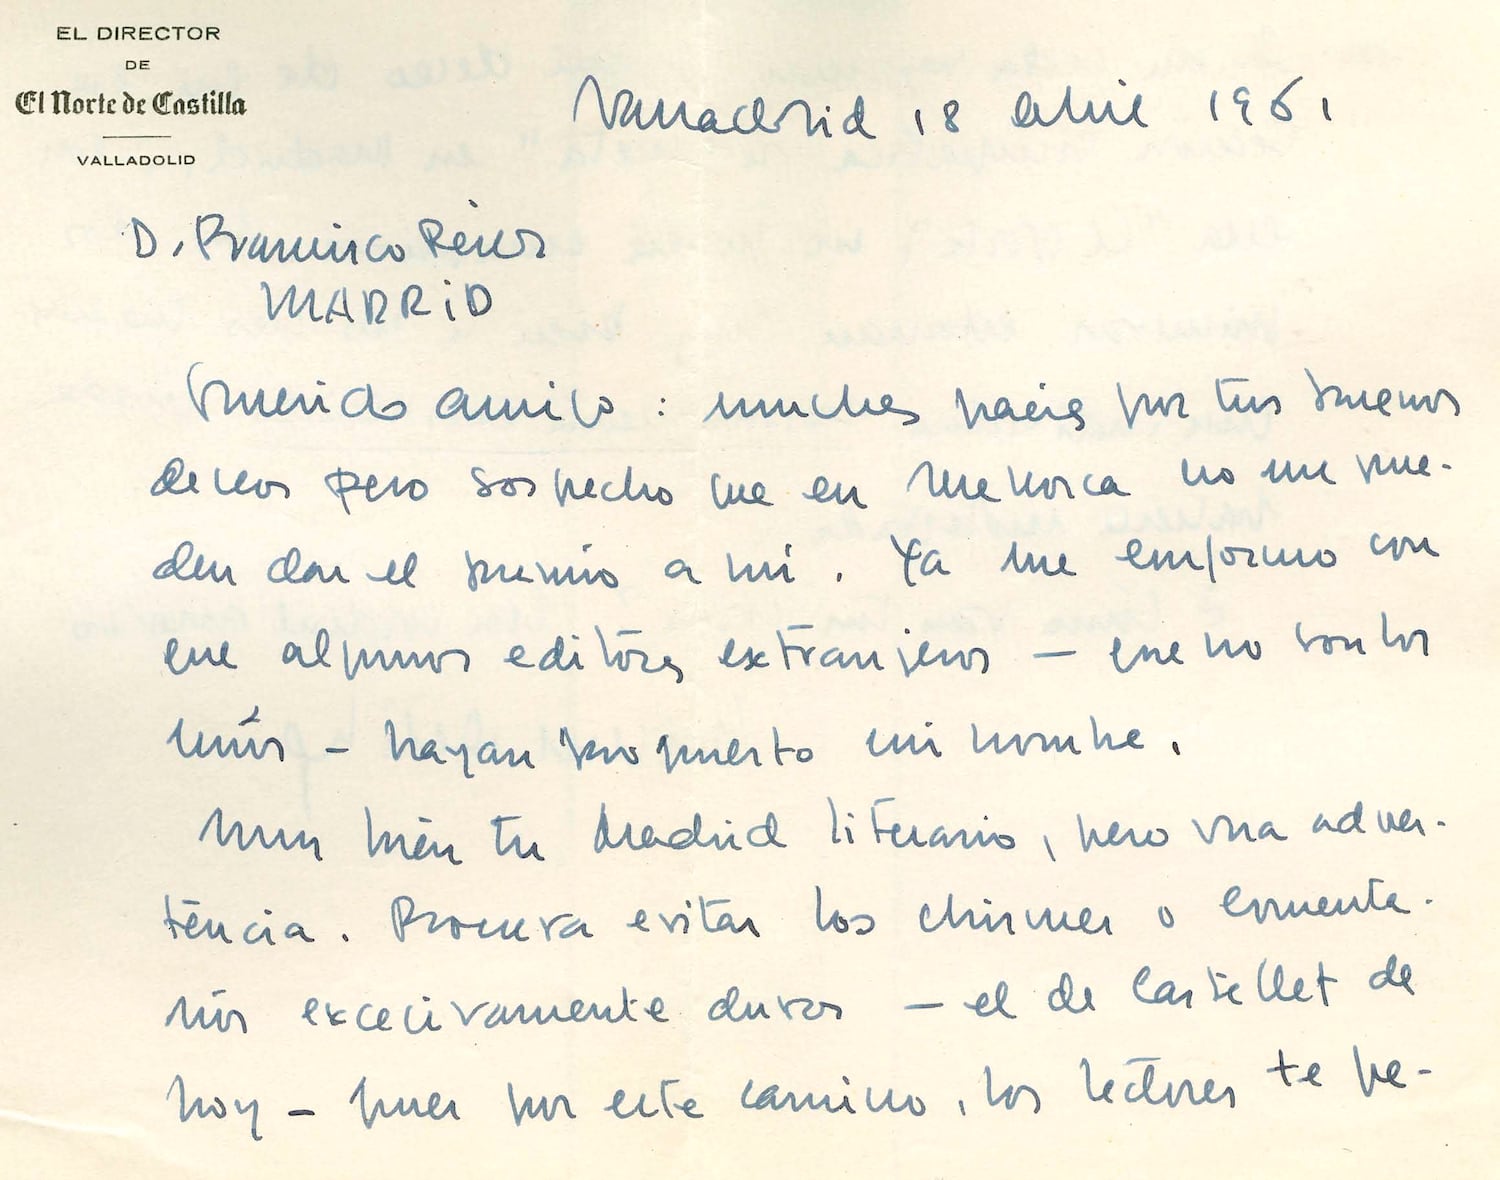 EL DIRECTOR
DE
El Norte de Castilla
VALLADOLID
Valladolid 18 abril 1961
D. Francisco Pérez
MADRID
Querido amigo : muchas gracias por tus buenos
deseos pero sospecho que en Mallorca no me pue-
den dar el premio a mí. Ya me conformo con
que algunos editores extranjeros — que no son los
míos — hayan propuesto mi nombre.
Muy bien tu Madrid literario, pero una adver-
tencia. Procura evitar los chismes o comenta-
rios excecivamente duros — el de Castellet de
hoy — pues por este camino, los lectores te pe-